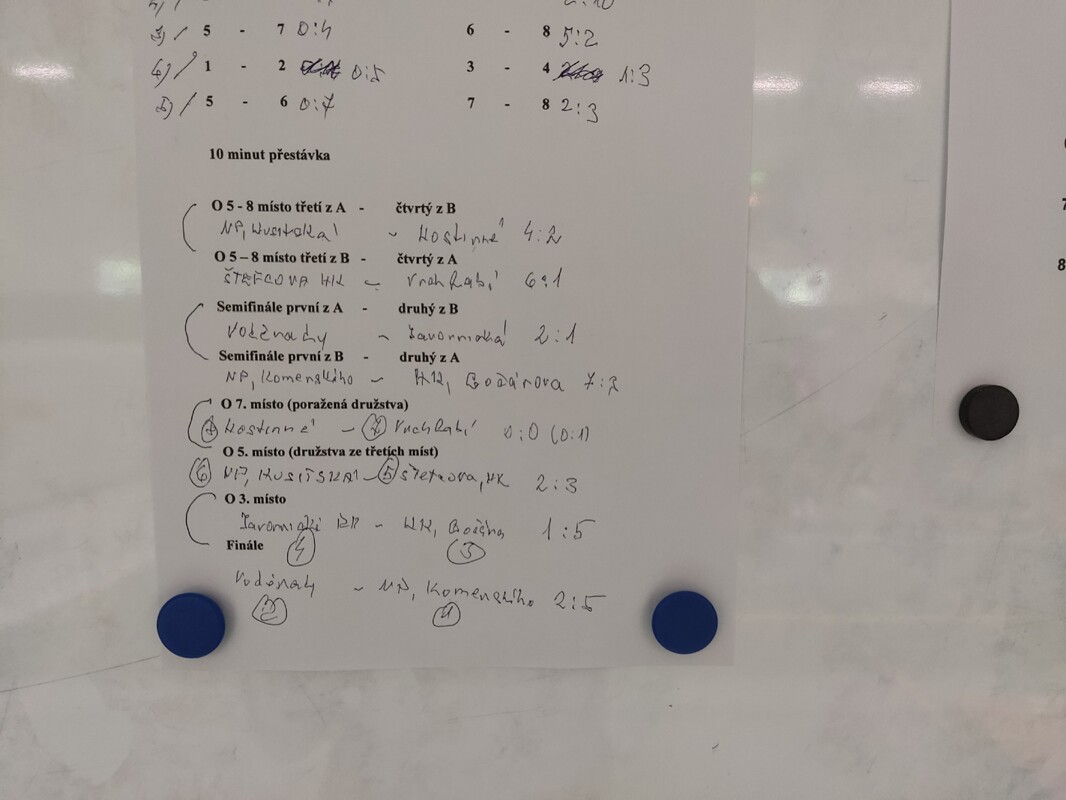 3) / 5 - 7 0:4 6 - 8 5:2
4) / 1 - 2 0:5 3 - 4 1:3
5) / 5 - 6 0:7 7 - 8 2:3
10 minut přestávka
O 5 - 8 místo třetí z A - čtvrtý z B
NP, Husitská - Hostinné 4:2
O 5 – 8 místo třetí z B - čtvrtý z A
ŠTEFCOVA HK - Vrchlabí 6:1
Semifinále první z A - druhý z B
Voděrady - Javornická 2:1
Semifinále první z B - druhý z A
NP, Komenského - HK, Gočárova 7:2
O 7. místo (poražená družstva)
Hostinné - 7 Vrchlabí 0:0 (0:1)
O 5. místo (družstva ze třetích míst)
6 NP, HUSITSKÁ - 5 Štefcova, HK 2:3
O 3. místo
Javornická - HK, Gočára 1:5
Finále 4 3
Voděrady - NP, Komenského 2:5
2 1
7
8